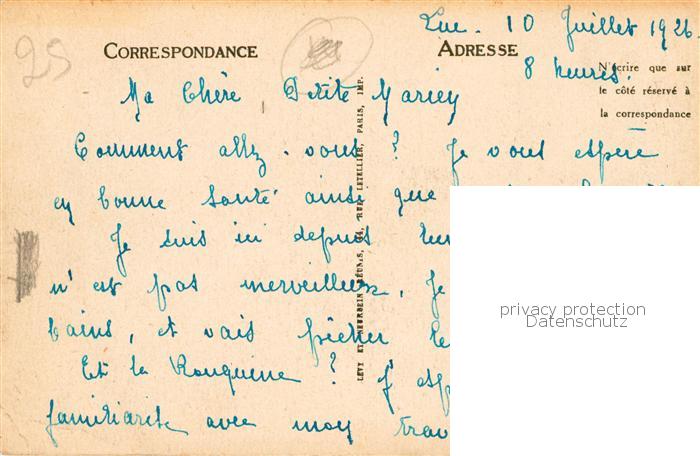 Luc. 10 Juillet 1926.
25
CORRESPONDANCE
ADRESSE
8 heures.
N'écrire que sur
le côté réservé à
la correspondance
Ma Chère Petite
Comment allez-vous? Je vous espère
en bonne santé ainsi que
Je suis ici depuis
n'est pas merveilleux, Je
bains, et vais pêcher le
Et la Rouquine? J'esp
familiarite avec mon trav
LÉVY ET NEURDEIN RÉUNIS, 44, RUE LETELLIER, PARIS, IMP.
privacy protection
Datenschutz